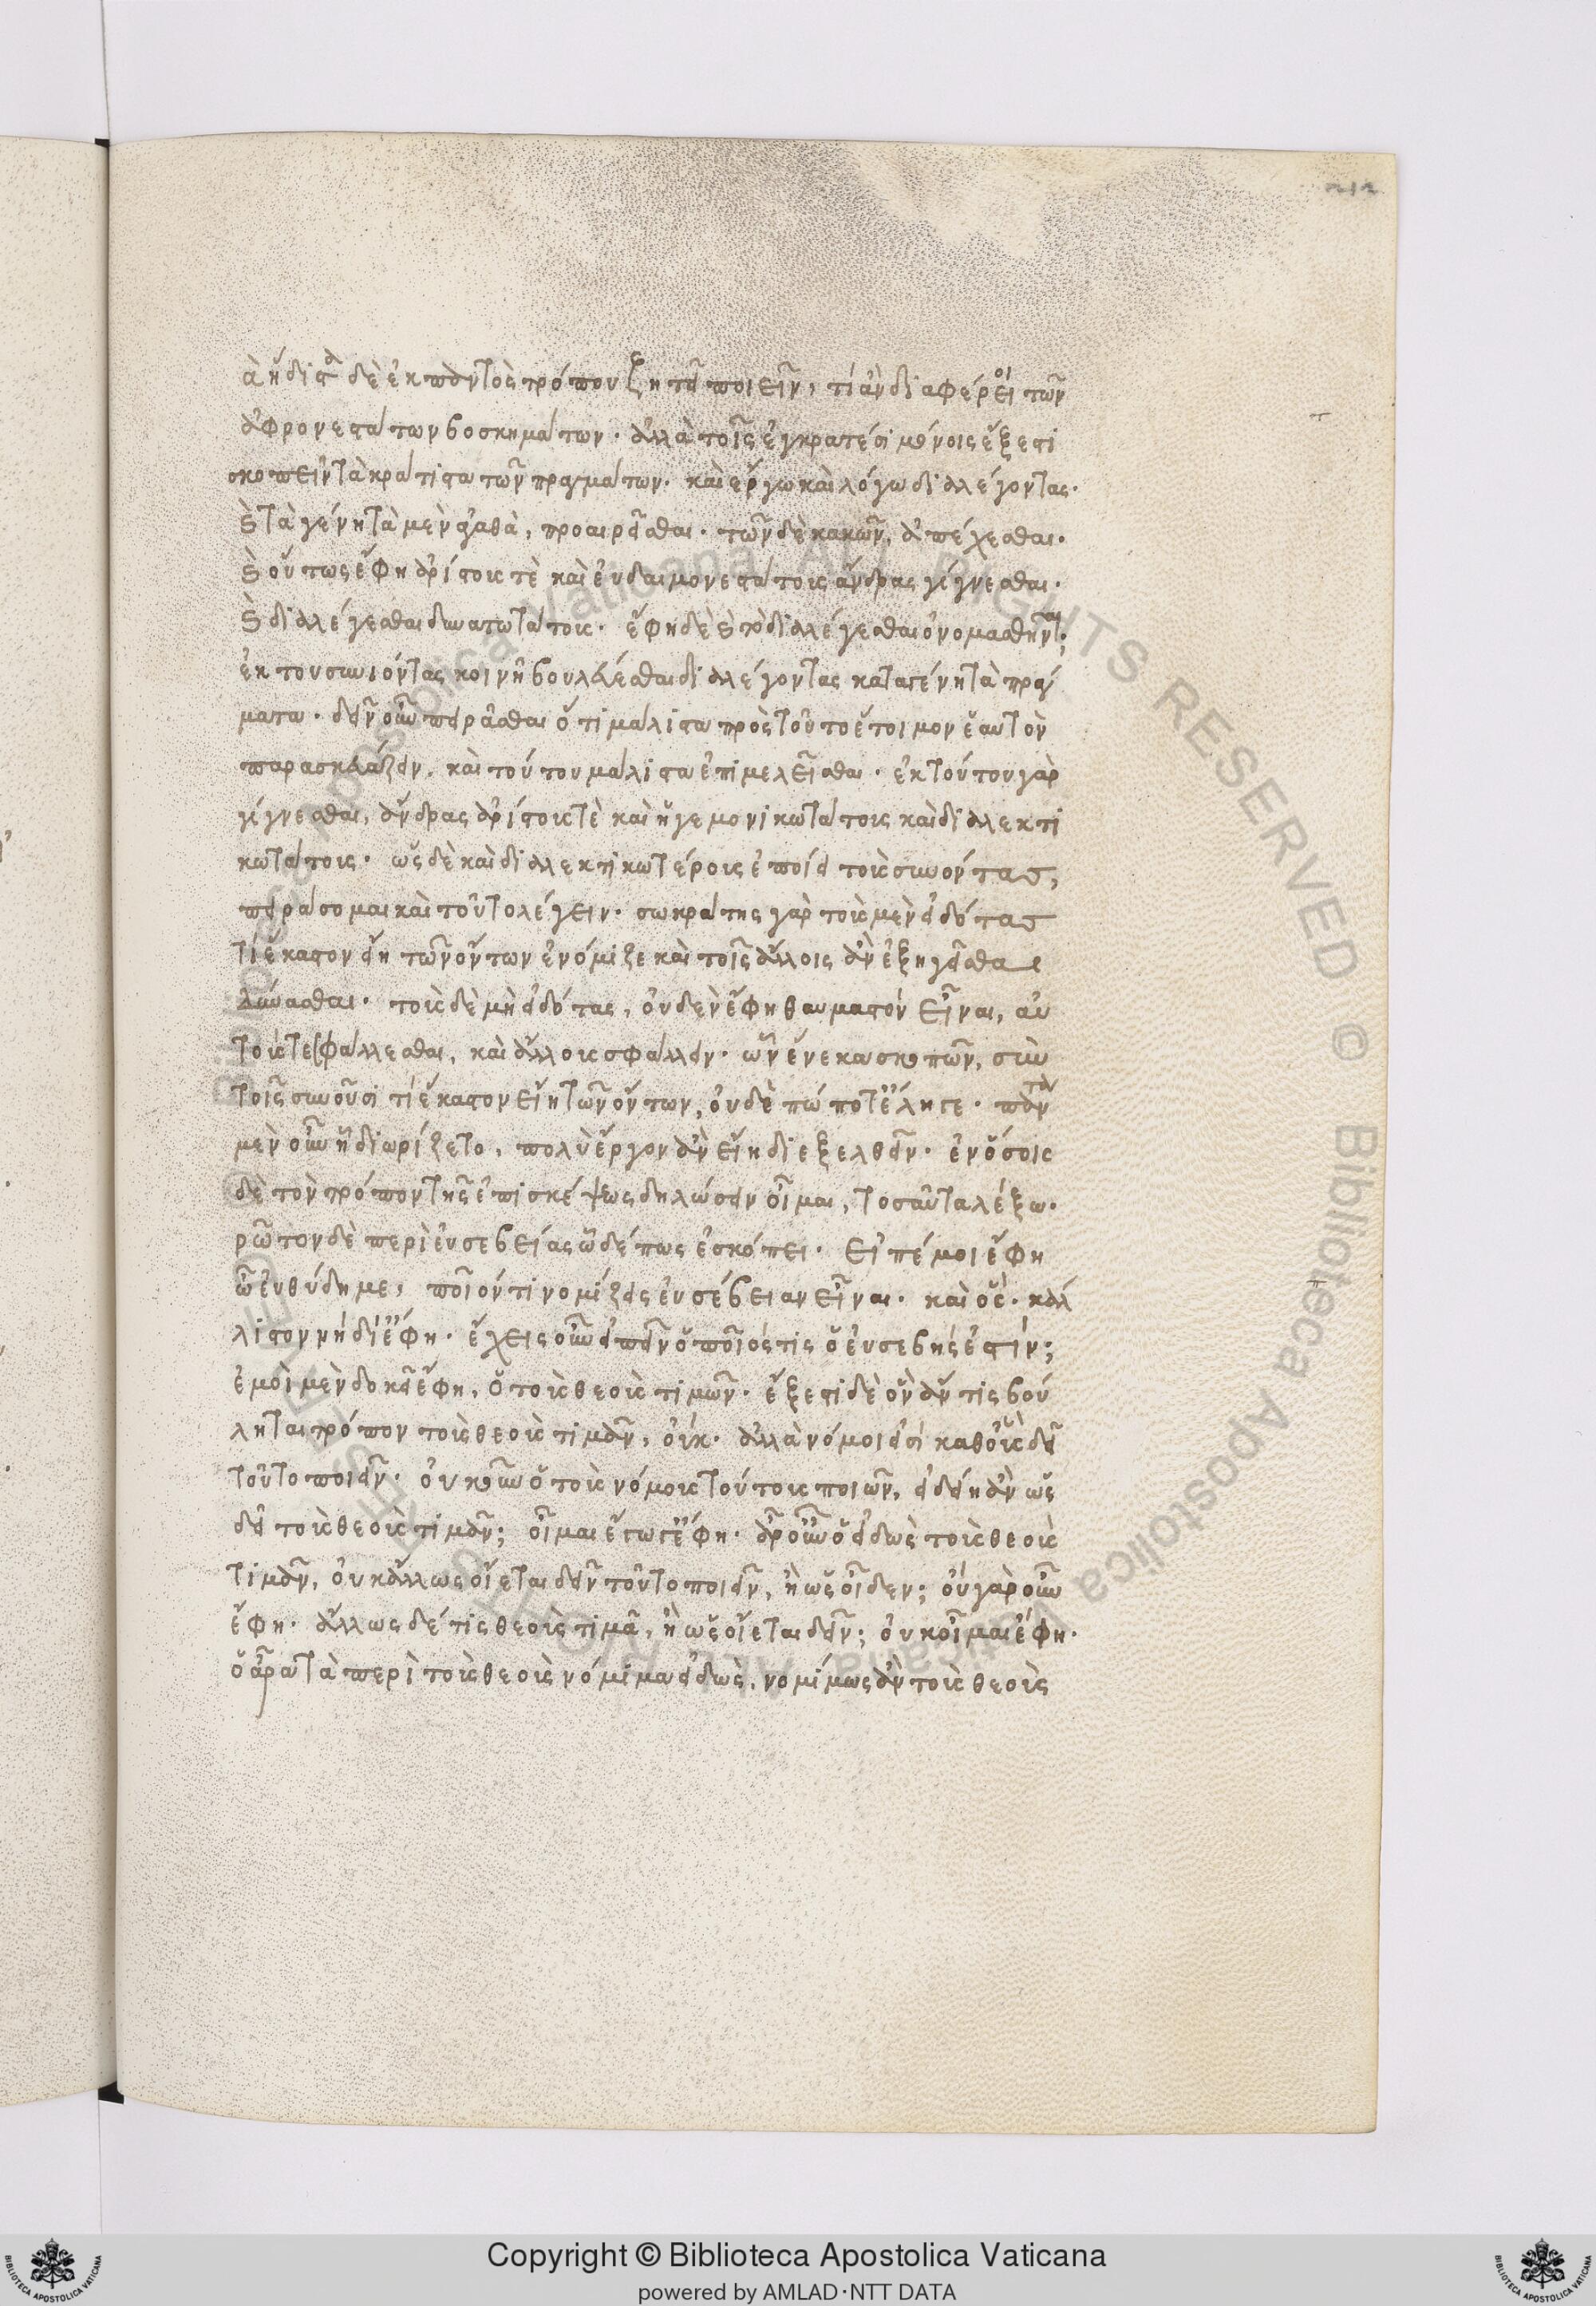 212
ἃ ἥδιστα δὲ ἐκ παντὸς τρόπου ζητεῖ ποιεῖν, τί ἂν διαφέροι τῶν
ἀφρονεστάτων βοσκημάτων· ἀλλὰ τοῖς ἐγκρατέσι μόνοις ἔξεστι
σκοπεῖν τὰ κράτιστα τῶν πραγμάτων· καὶ ἔργω καὶ λόγω διαλέγοντας·
καὶ τὰ γένη τὰ μὲν ἀγαθὰ, προαιρεῖσθαι· τῶν δὲ κακῶν, ἀπέχεσθαι·
καὶ οὕτως ἔφη ἀρίστους τὲ καὶ ἐυδαιμονεστάτους ἄνδρας γίγνεσθαι·
καὶ διαλέγεσθαι δυνατωτάτους· ἔφη δὲ καὶ τὸ διαλέγεσθαι ὀνομασθῆναι,
ἐκ του συνιόντας κοινῆ βουλεύεσθαι διαλέγοντας κατα γένη τὰ πράγ
ματα· δεῖν οὖν πειρᾶσθαι ὅτι μάλιστα πρὸς τοῦτο ἕτοιμον ἑαυτὸν
παρασκευάζειν, καὶ τούτου μάλιστα ἐπιμελεῖσθαι· ἐκ τούτου γὰρ
γίγνεσθαι, ἄνδρας ἀρίστους τὲ καὶ ἡγεμονικωτάτους καὶ διαλεκτι
κωτάτους· ὡς δὲ καὶ διαλεκτικωτέρους ἐποίει τοὺς συνόντας,
πειράσομαι καὶ τοῦτο λέγειν· σωκράτης γὰρ τοὺς μὲν εἰδότας
τί ἕκαστον εἴη τῶν ὄντων ἐνόμιζε καὶ τοῖς ἄλλοις ἂν ἐξηγεῖσθαι
δύνασθαι· τοὺς δὲ μὴ εἰδότας, οὐδὲν ἔφη θαυμαστὸν εἶναι, αὐ
τούς τε σφάλλεσθαι, καὶ ἄλλους σφάλλειν· ὧν ἕνεκα σκοπῶν, σὺν
τοῖς συνοῦσι τί ἕκαστον εἴη τῶν ὄντων, οὐδὲ πώποτ' ἔληγε· πάντα
μὲν οὖν ἧ διωρίζετο, πολὺ ἔργον ἂν εἴη διεξελθεῖν· ἐν ὅσοις
δὲ τὸν τρόπον τῆς ἐπισκέψεως δηλώσειν οἶμαι, τοσαῦτα λέξω·
ρῶτον δὲ περὶ ἐυσεβείας ὧδέ πως ἐσκόπει· εἰπέ μοι ἔφη
ὦ ἐυθύδημε, ποῖόν τι νομίζεις ἐυσέβειαν εἶναι· καὶ ὅς· κάλ
λιστον νὴ δί' ἔφη· ἔχεις οὖν εἰπεῖν ὁποῖός τις ὁ ἐυσεβής ἐστίν;
ἐμοὶ μὲν δοκεῖ ἔφη, ὁ τοὺς θεοὺς τιμῶν· ἔξεστι δὲ ὃν ἄν τις βού
ληται τρόπον τοὺς θεοὺς τιμᾶν, οὔκ· ἀλλὰ νόμοι εἰσί καθ' οὓς δεῖ
τοῦτο ποιεῖν· οὐκοῦν ὁ τοὺς νόμους τούτους ποιῶν, εἰδείη ἂν ὡς
δεῖ τοὺς θεοὺς τιμᾶν; οἶμαι ἔγωγ' ἔφη· ἆρ' οὖν ὁ εἰδὼς τοὺς θεοὺς
τιμᾶν, οὐκ ἄλλως οἴεται δεῖν τοῦτο ποιεῖν, ἢ ὡς οἶδεν; οὐ γὰρ οὖν
ἔφη· ἄλλως δέ τις θεοὺς τιμᾶ, ἢ ὡς οἴεται δεῖν; οὐκ οἶμαι ἔφη·
ὁ ἄρα τὰ περὶ τοὺς θεοὺς νόμιμα εἰδὼς, νομίμως ἂν τοὺς θεοὺς
Copyright © Biblioteca Apostolica Vaticana
powered by AMLAD·NTT DATA